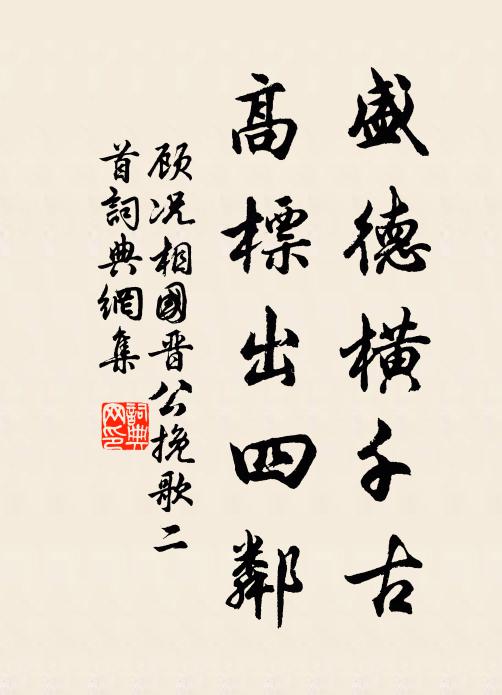 盛德横千古
高標出四鄰
顾况相國晋公挽歌二
首詞典網集
詞典网印